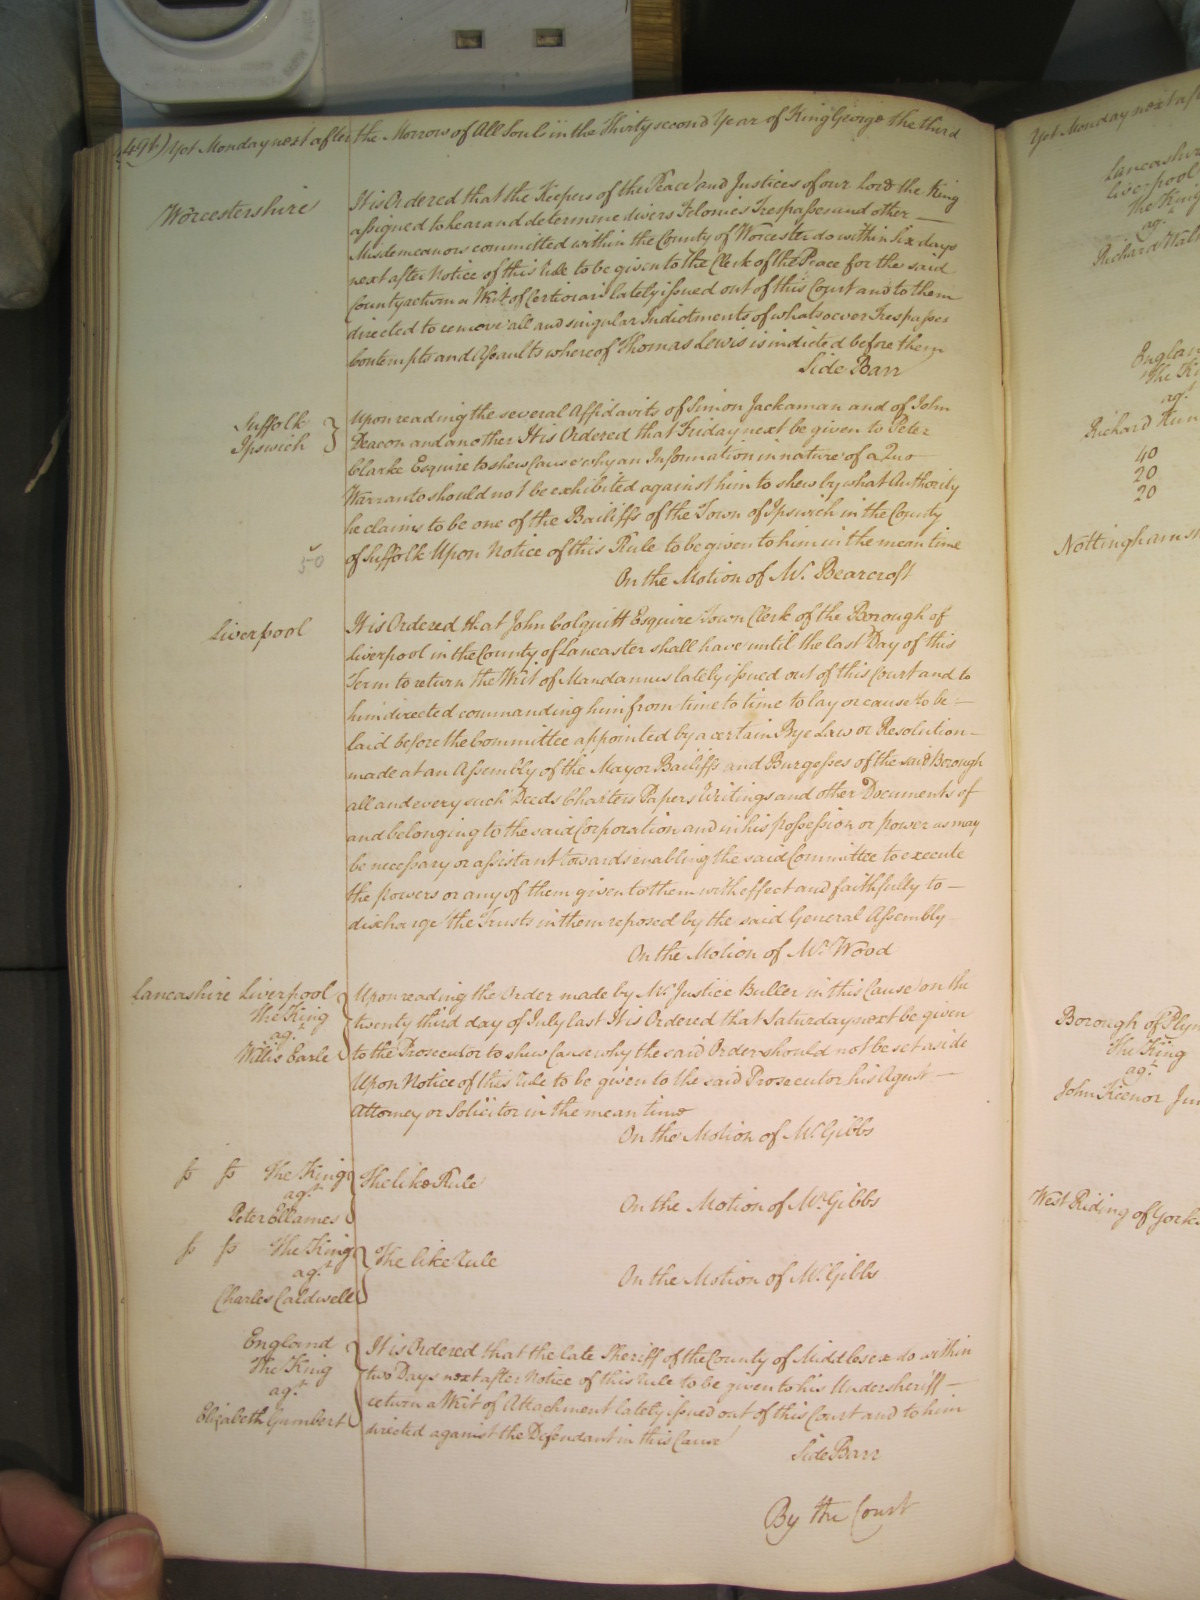 (496) Yet Monday next after the Morrow of All Souls in the Thirty second Year of King George the third
Worcestershire
It is Ordered that the Keepers of the Peace and Justices of our Lord the King
assigned to hear and determine divers Felonies Trespasses and other —
Misdemeanors committed within the County of Worcester do within Six days
next after Notice of this Rule to be given to the Clerk of the Peace for the said
County return a Writ of Certiorari lately issued out of this Court and to them
directed to remove all and singular Indictments of whatsoever Trespasses
Contempts and Assaults whereof Thomas Lewis is indicted before them
Side Barr
Suffolk
Ipswich
Upon reading the several Affidavits of Simon Jackaman and of John
Deacon and another It is Ordered that Friday next be given to Peter
Clarke Esquire to shew Cause why an Information in nature of a Quo
Warranto should not be exhibited against him to shew by what Authority
he claims to be one of the Bailiffs of the Town of Ipswich in the County
of Suffolk Upon Notice of this Rule to be given to him in the mean time
50
On the Motion of Mr. Bearcroft
Liverpool
It is Ordered that John Colquitt Esquire Town Clerk of the Borough of
Liverpool in the County of Lancaster shall have until the last Day of this
Term to return the Writ of Mandamus lately issued out of this Court and to
him directed commanding him from time to time to lay or cause to be —
laid before the Committee appointed by a certain Bye Law or Resolution —
made at an Assembly of the Mayor Bailiffs and Burgesses of the said Borough
all and every such Deeds Charters Papers Writings and other Documents of
and belonging to the said Corporation and in his possession or power as may
be necessary or assistant towards enabling the said Committee to execute
the powers or any of them given to them with effect and faithfully to —
discharge the Trusts in them reposed by the said General Assembly
On the Motion of Mr. Wood
Lancashire Liverpool
The King
agt.
Willis Earle
Upon reading the Order made by Mr. Justice Buller in this Cause on the
twenty third day of July last It is Ordered that Saturday next be given
to the Prosecutor to shew Cause why the said Order should not be set aside
Upon Notice of this Rule to be given to the said Prosecutor his Agent —
Attorney or Solicitor in the mean time
On the Motion of Mr. Gibbs
The King
agt.
Peter Ellames
The like Rule
On the Motion of Mr. Gibbs
The King
agt.
Charles Caldwell
The like Rule
On the Motion of Mr. Gibbs
England
The King
agt.
Elizabeth Gumbert
It is Ordered that the late Sheriff of the County of Middlesex do within
two Days next after Notice of this Rule to be given to his Undersheriff —
return a Writ of Attachment lately issued out of this Court and to him
directed against the Defendant in this Cause
Side Barr
By the Court
Yet Monday next
Lancashire
Liverpool
The King
agt.
Richard
The
agt.
Richard
40
20
20
Borough of
The King
agt.
John
West Riding of